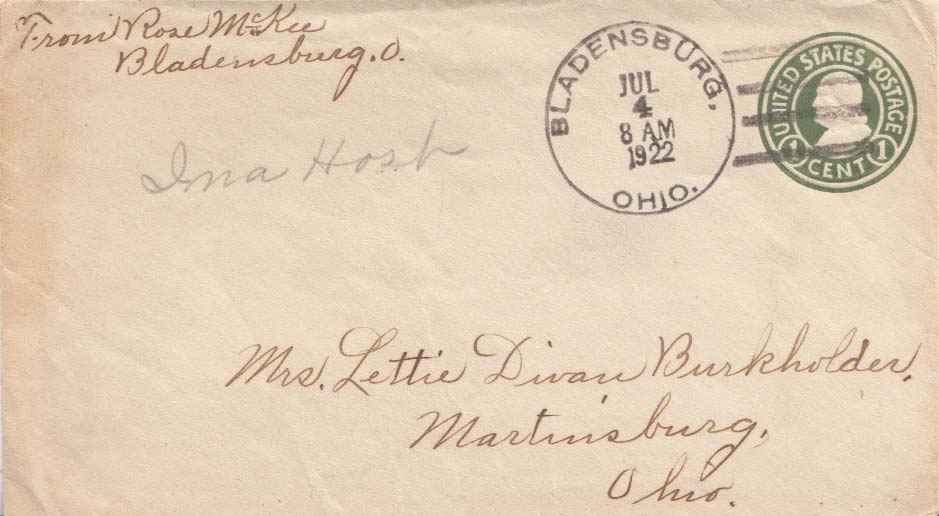 From Rose McKee
Bladensburg, O.
BLADENSBURG,
JUL
4
8 AM
1922
OHIO.
UNITED STATES POSTAGE
1 CENT 1
Ina Host
Mrs. Lettie Divan Burkholder,
Martinsburg,
Ohio.